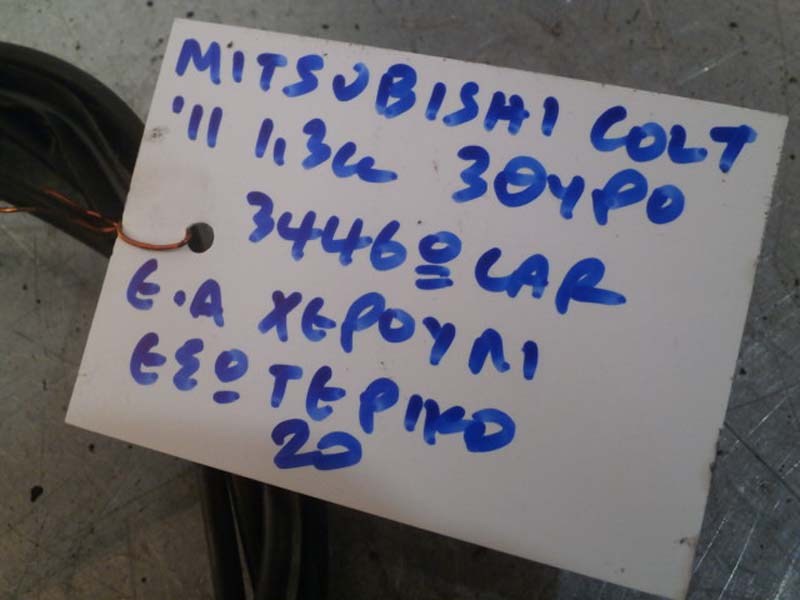 MITSUBISHI COLT
'11 1,3cc 3ΘΥΡΟ
3446º CAR
Ε.Α ΧΕΡΟΥΛΙ
ΕΣΩΤΕΡΙΚΟ
20